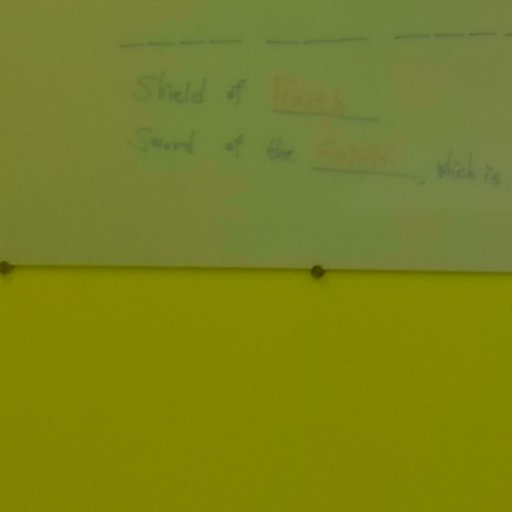 Shield of Faith
Sword of the Spirit, which is